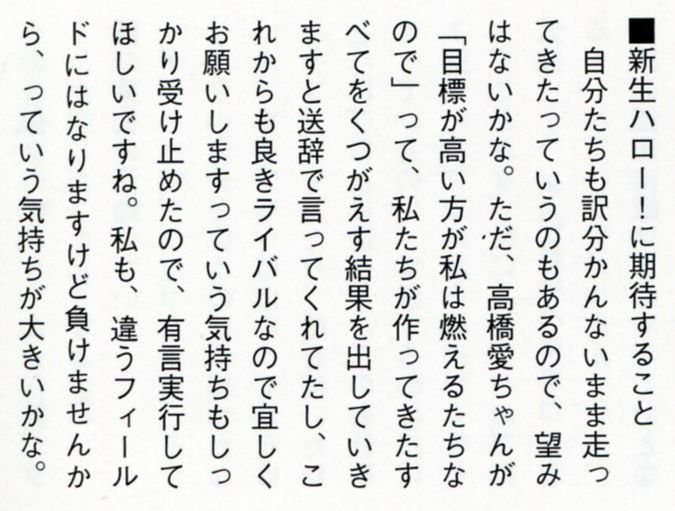 ■新生ハロー！に期待すること
自分たちも訳分かんないまま走っ
てきたっていうのもあるので、望み
はないかな。ただ、高橋愛ちゃんが
「目標が高い方が私は燃えるたちな
ので」って、私たちが作ってきたす
べてをくつがえす結果を出していき
ますと送辞で言ってくれてたし、こ
れからも良きライバルなので宜しく
お願いしますっていう気持ちもしっ
かり受け止めたので、有言実行して
ほしいですね。私も、違うフィール
ドにはなりますけど負けませんか
ら、っていう気持ちが大きいかな。